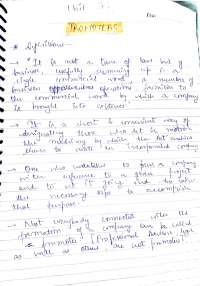 Unit 3.
PROMOTERS
* Definitions -
→ "It is not a term of law but of
business, usefully summing up in a
single commercial word a number of
business operations familiar to
the commercial world by which a company
is brought into existence."
→ It is a short & convenient way of
designating those who set in motion
the machinery by which the Act enables
them to create an incorporated company
→ One who undertakes to form a company
with reference to a given project
and to set it going and to take
the necessary steps to accomplish
that purpose.
→ Not everybody connected with the
formation of a company can be called
a promoter. Professional
as well as others are not promoters.